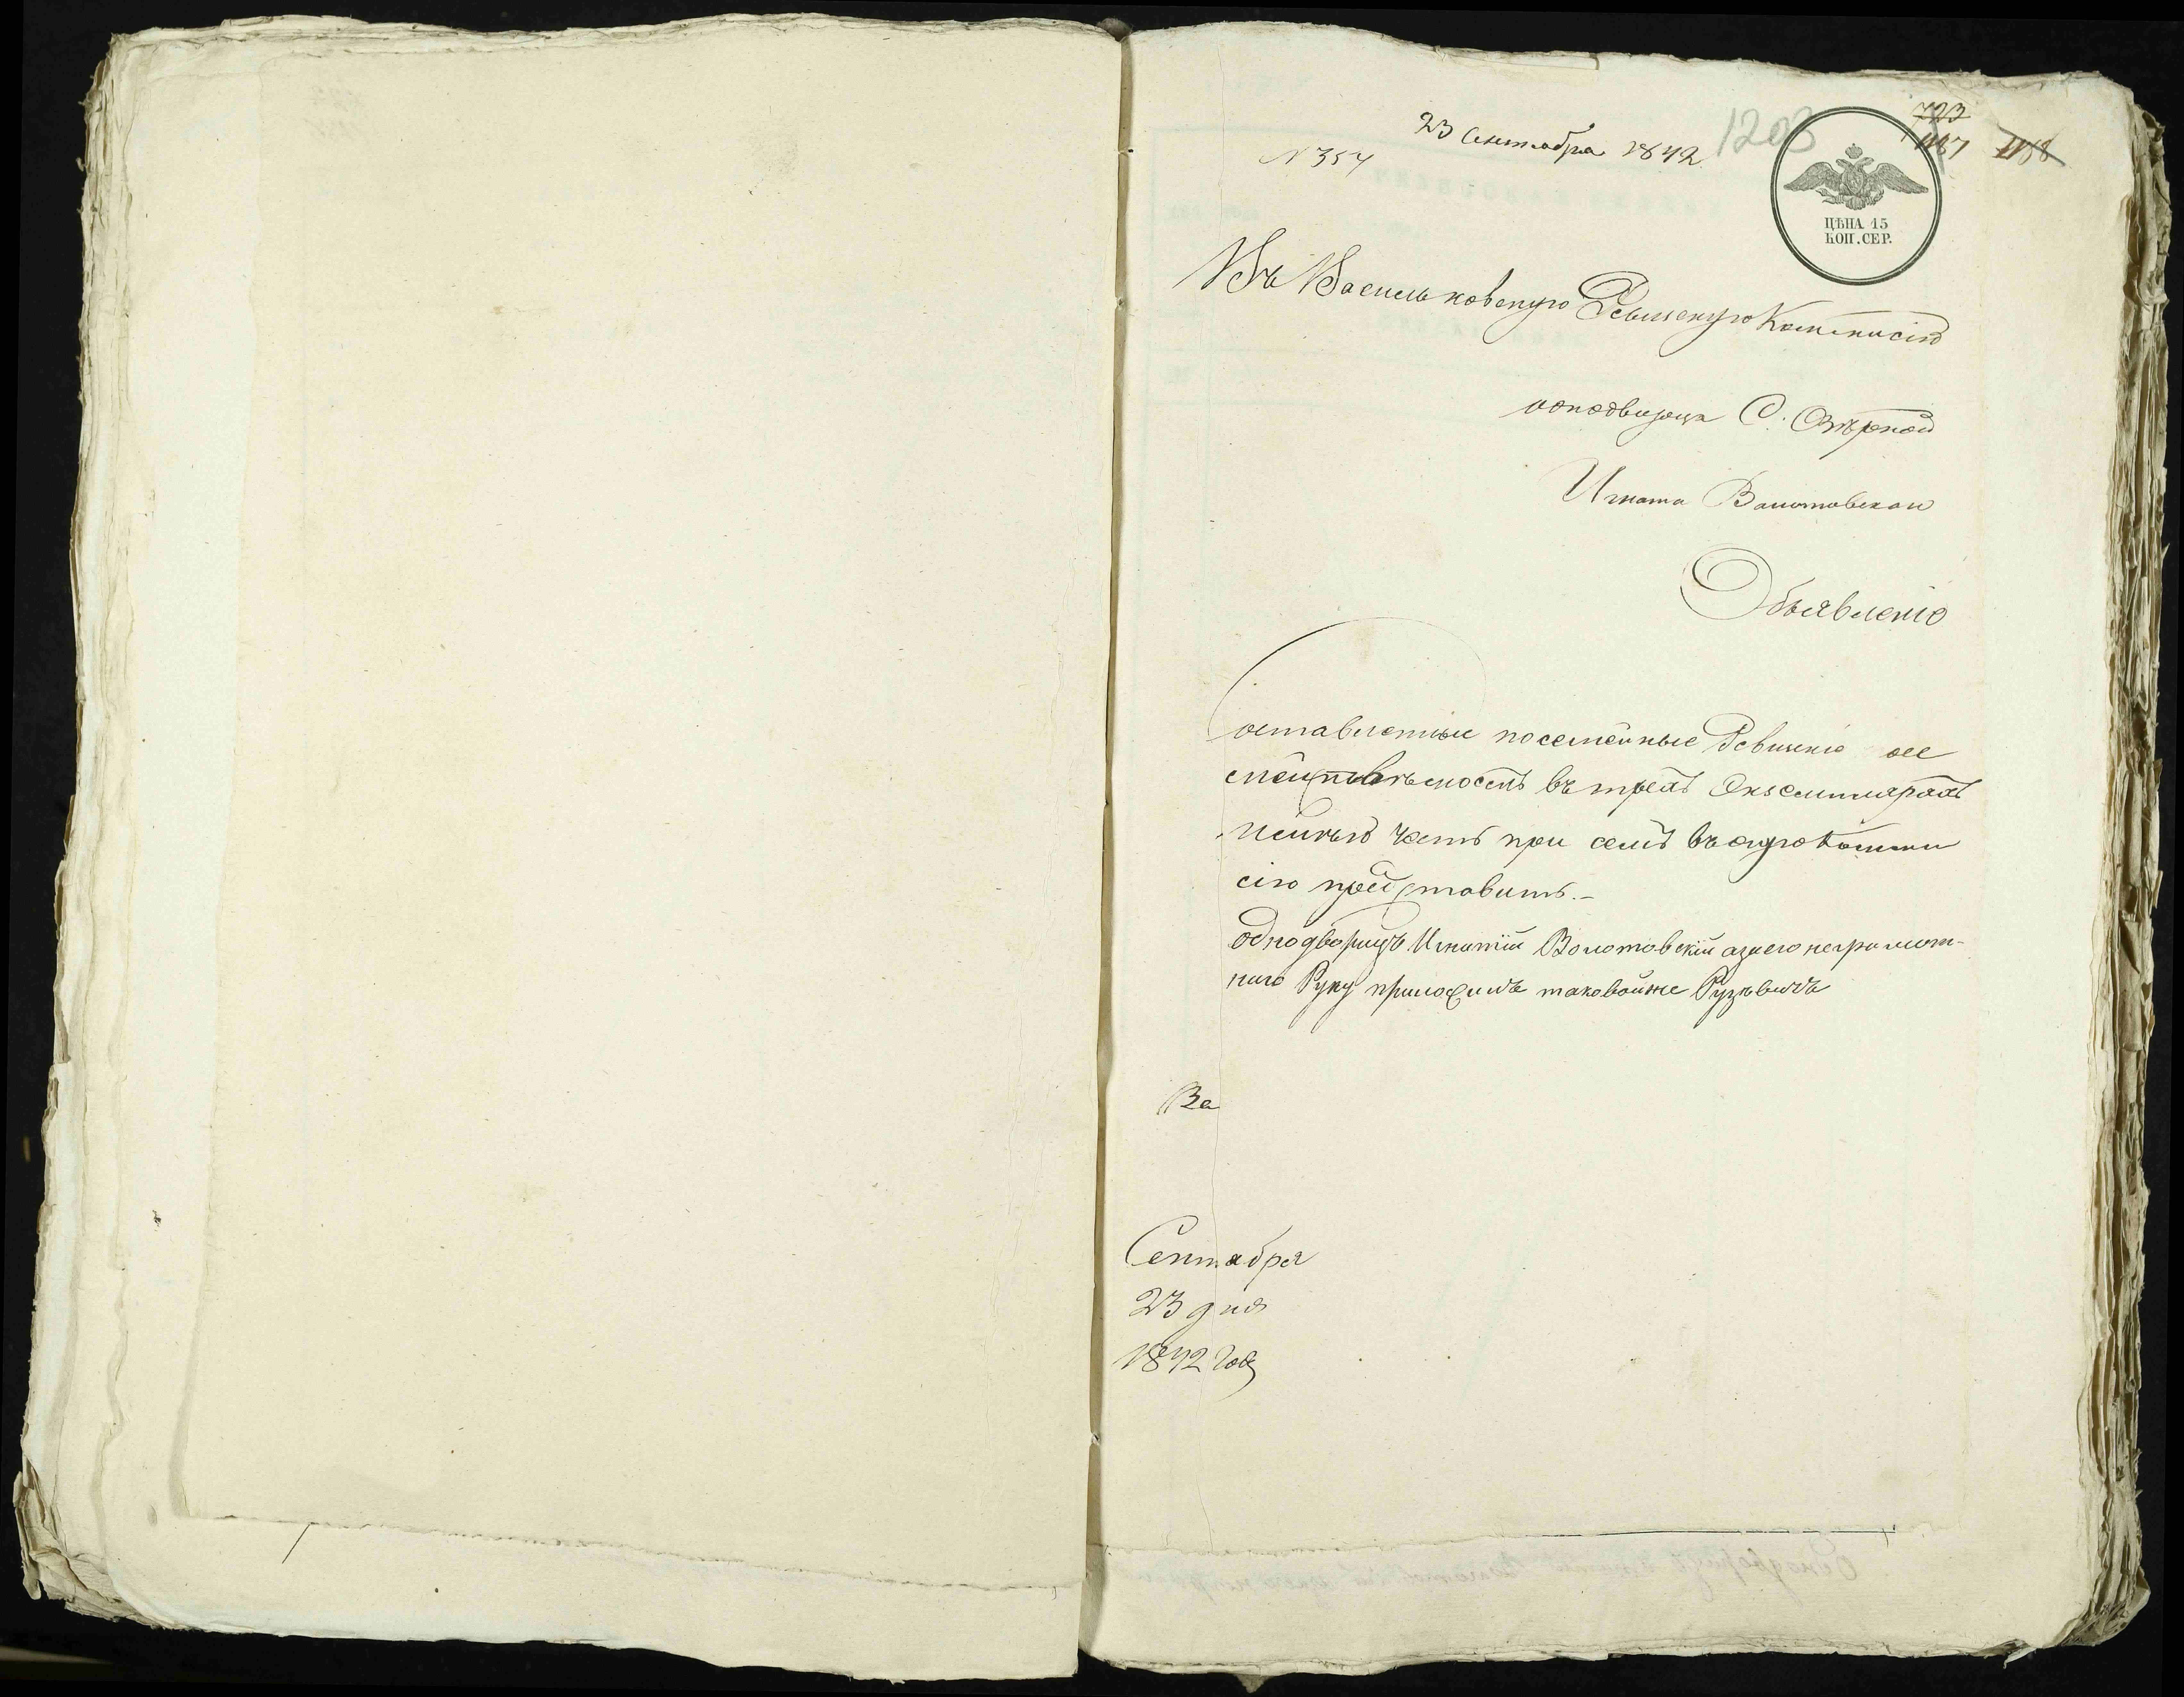 723
1187 1188
1203
23 Сентября 1842
N 357
ЦѢНА 15
КОП. СЕР.
Въ Васильковскую Ревизскую Коммисію
однодворца С. Озѣрной
Игната Волотовскаго
Объявленіе
Составленные посемейныя Ревизкіе
въ трехъ Екземплярахъ
имѣю честь при семъ въ оную Комми
сію представить.-
однодворецъ Игнатій Волотовскій азаего неграмот-
наго Руку приложилъ таковойже
Ва
Сентября
23 дня
1842 года